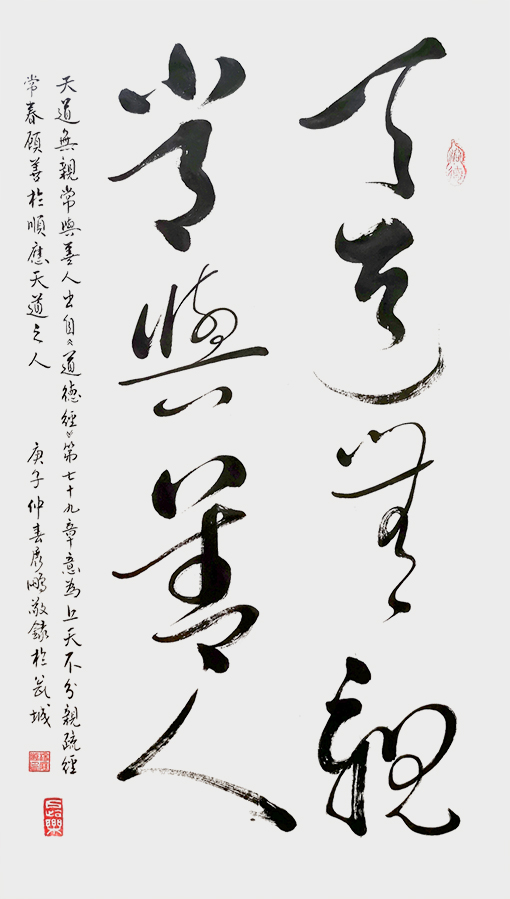 天道無親
常與善人
天道無親常與善人出自《道德經》第七十九章意為上天不分親疏經
常眷顧善於順應天道之人
庚子仲春彥鵬敬錄於瓷城